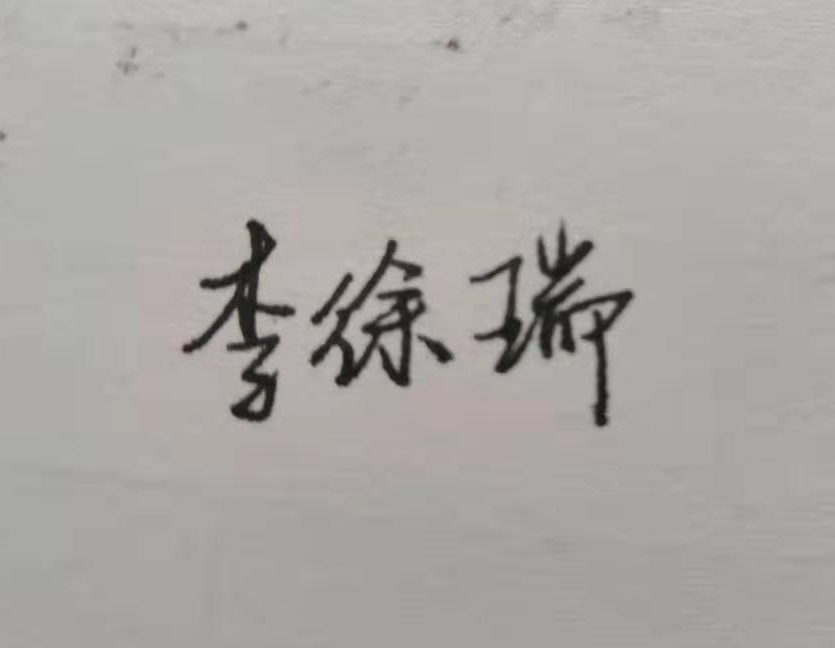 李徐瑞